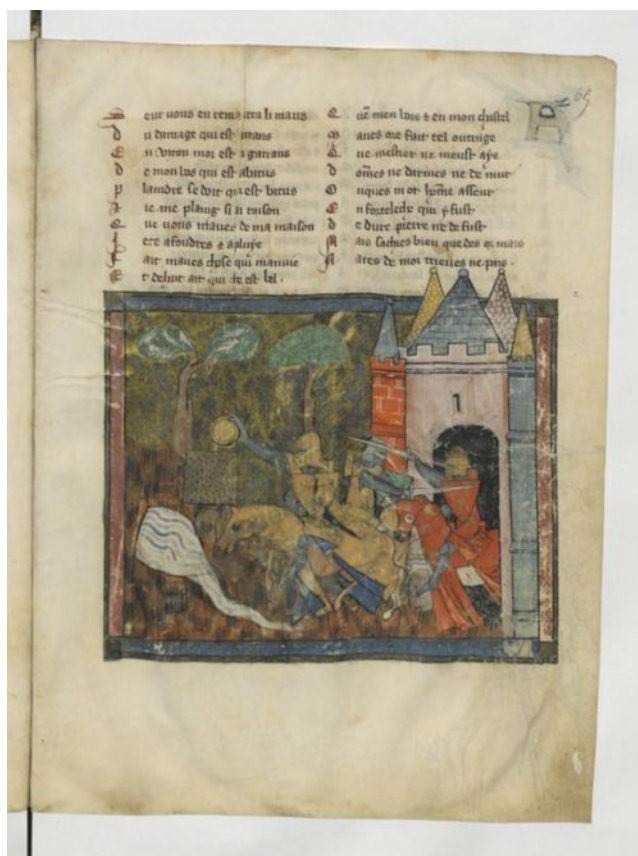 S eur vous en remanra li maus
d u damage qui est
E n viron moi est a garans
d e mon bos qui est abatus
p laindre se doit qui est batus
Z ie me plaing si ai raison
Q ue vous maves de ma maison
J ete a foudres & a pluye
F ait maves chose qui manuie
E t dehait ait qui che est bel .
Q uē mon bois & en mon chastel
M aves ore fait tel outrage
Q ue mestier ne meust aye
d omes ne darmes ne de mur
O nques not home asseur
E n fortelece qui y fust
d e dure pierre ne de fust
M ais sachies bien que des or mais
N ares de moi trieves ne pais .